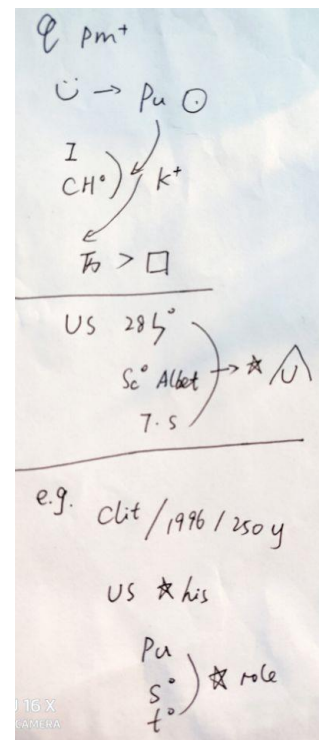 pm⁺
ü → Pu ⊙
I
CH° ) K⁺
> □
US 28
Sc° Albet → ☆ U
7.s
e.g. Clit / 1996 / 250 y
US ☆ his
Pu
s° ) ☆ role
t°
J 16 X
CAMERA